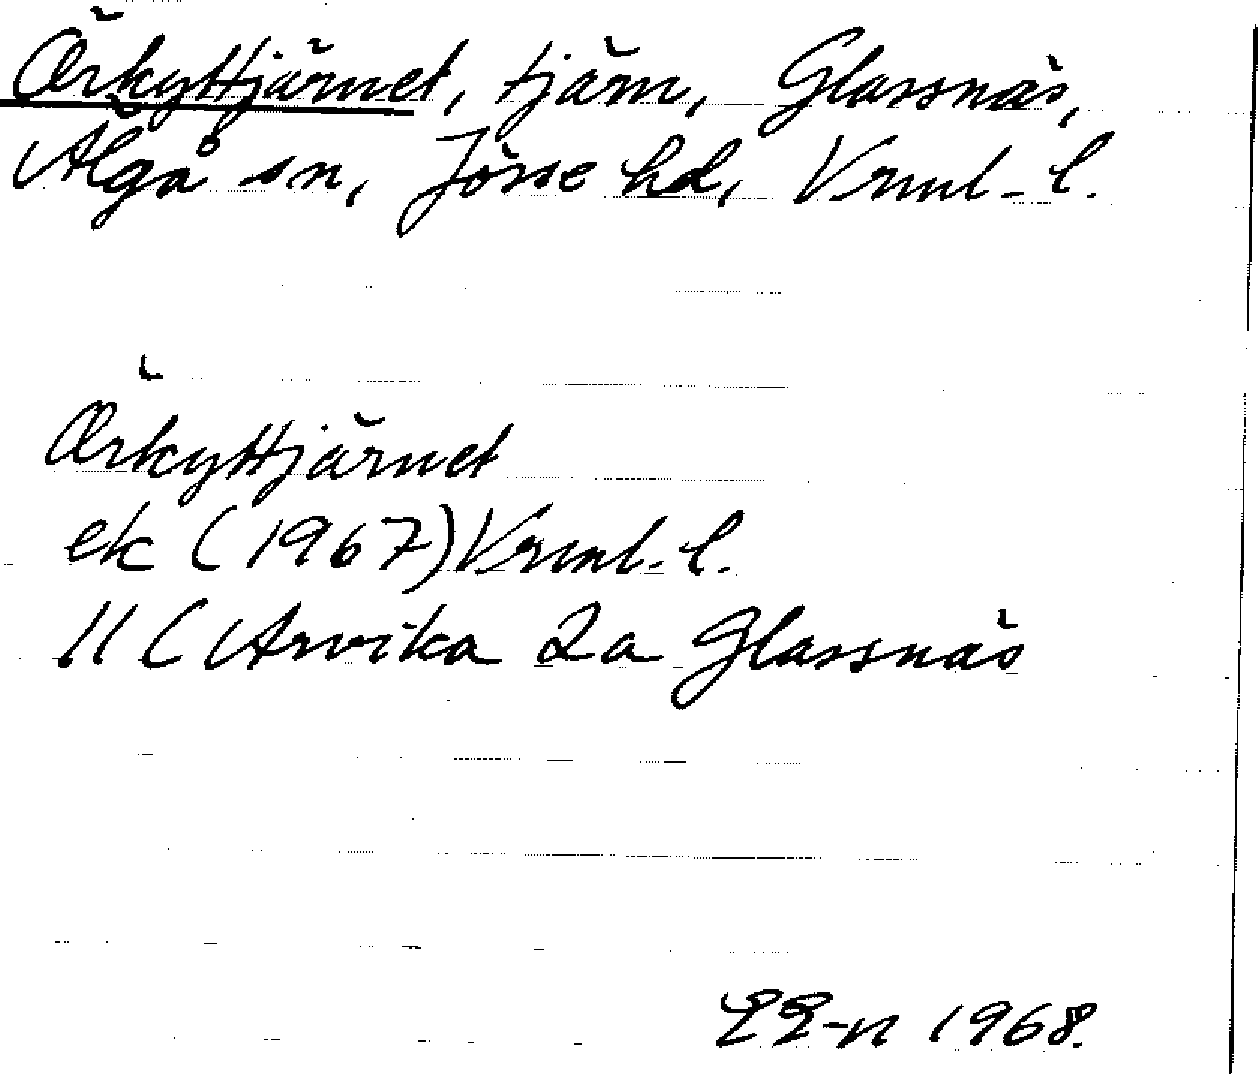 Ärkyttjärnet, tjärn, Glassnäs,
Älgå sn, Jösse hd, Vrml-l.
Ärkyttjärnet
ek (1967) Vrml. l.
11C Arvika 2a Glassnäs
1968.